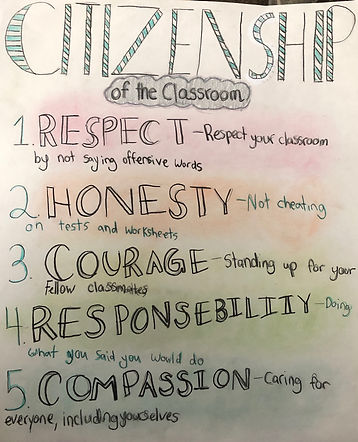 CITIZENSHIP
of the Classroom
1. RESPECT - Respect your classroom
by not saying offensive words
2. HONESTY - Not cheating
on tests and worksheets
3. COURAGE - Standing up for your
fellow classmates
4. RESPONSEBILIIY - Doing
what you said you would do
5. COMPASSION - Caring for
everyone, including yourselves